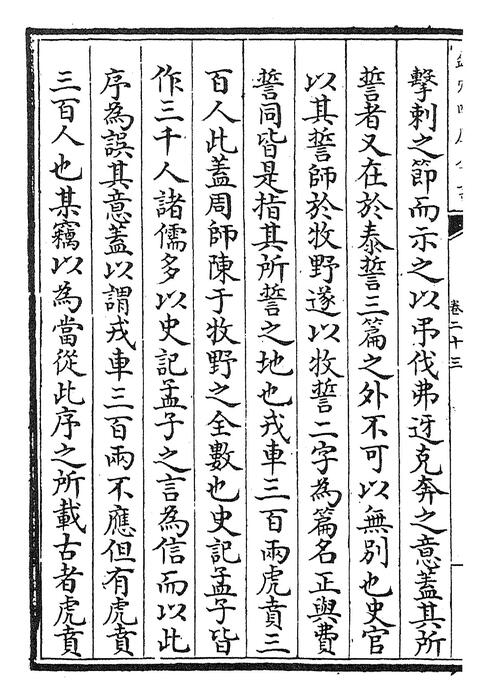 擊刺之節而示之以弔伐弗迓克奔之意蓋其所
誓者又在於泰誓三篇之外不可以無别也史官
以其誓師於牧野遂以牧誓二字為篇名正與費
誓同皆是指其所誓之地也戎車三百兩虎賁三
百人此蓋周師陳于牧野之全數也史記孟子皆
作三千人諸儒多以史記孟子之言為信而以此
序為誤其意蓋以謂戎車三百兩不應但有虎賁
三百人也某竊以為當從此序之所載古者虎賁
卷二十三